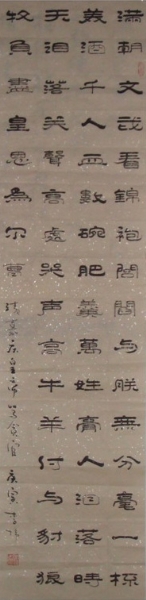 滿朝文武着錦袍閭閻与朕無分毫一杯
美酒千人血數碗肥羹萬姓膏人泪落時
天泪落笑聲高處哭声高牛羊付与豺狼
牧負盡皇恩為尔曹
清嘉庆皇帝 庚寅